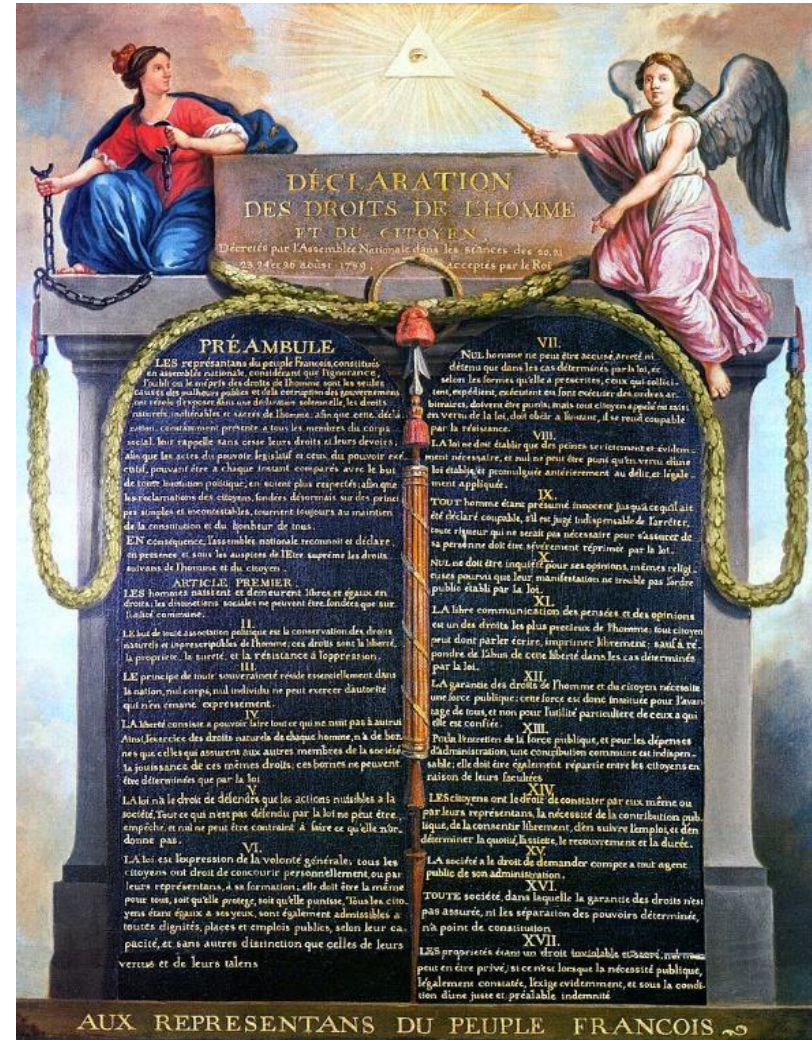 DÉCLARATION
DES DROITS DE L'HOMME
ET DU CITOYEN
Décretés par l'Assemblée Nationale dans les séances des 20, 21
23, 24 et 26 aoust 1789, acceptés par le Roi
PRÉAMBULE
LES représantans du peuple François, constitués
en assemblée nationale, considérant que l'ignorance,
l'oubli ou le mépris des droits de l'homme sont les seules
causes des malheurs publics et de la corruption des gouvernemens
ont résolu d'exposer dans une déclaration solemnelle, les droits
naturels, inaliénables et sacrés de l'homme: afin que cette décla-
ration, constamment présente a tous les membres du corps
social, leur rappelle sans cesse leurs droits et leurs devoirs;
afin que les actes du pouvoir legislatif et ceux du pouvoir exé-
cutif, pouvant être a chaque instant comparés avec le but
de toute institution politique, en soient plus respectés; afin que
les reclamations des citoyens, fondées désormais sur des princi-
pes simples et incontestables, tournent toujours au maintien
de la constitution et du bonheur de tous.
EN conséquence, l'assemblée nationale reconnoit et déclare,
en presence et sous les auspices de l'Etre suprême les droits
suivans de l'homme et du citoyen.
ARTICLE PREMIER.
LES hommes naissent et demeurent libres et égaux en
droits; les distinctions sociales ne peuvent être fondées que sur
l'utilité commune.
II.
LE but de toute association politique est la conservation des droits
naturels et inprescriptibles de l'homme; ces droits sont la liberté,
la propriété, la sureté, et la résistance à l'oppression.
III.
LE principe de toute souveraineté réside essentiellement dans
la nation, nul corps, nul individu ne peut exercer d'autorité
qui n'en émane expressement.
IV.
LA liberté consiste a pouvoir faire tout ce qui ne nuit pas à autrui
Ainsi, l'exercice des droits naturels de chaque homme, n'a de bor-
nes que celles qui assurent aux autres membres de la société
la jouissance de ces mêmes droits; ces bornes ne peuvent
être déterminées que par la loi
V.
LA loi n'a le droit de défendre que les actions nuisibles a la
société. Tout ce qui n'est pas défendu par la loi ne peut être
empêché, et nul ne peut être contraint à faire ce qu'elle n'or-
donne pas.
VI.
LA loi est l'expression de la volonté générale; tous les
citoyens ont droit de concourir personnellement, ou par
leurs représentans, à sa formation; elle doit être la même
pour tous, soit qu'elle protege, soit qu'elle punisse. Tous les cito-
yens étant égaux a ses yeux, sont également admissibles a
toutes dignités, places et emplois publics, selon leur ca-
pacité, et sans autres distinction que celles de leurs
vertus et de leurs talens
VII.
NUL homme ne peut être accusé, arreté ni
détenu que dans les cas déterminés par la loi, et
selon les formes qu'elle a prescrites, ceux qui sollici-
tent, expédient, exécutent ou font exécuter des ordres ar-
bitraires, doivent être punis; mais tout citoyen appelé ou saisi
en vertu de la loi, doit obéir a l'instant, il se rend coupable
par la résistance.
VIII.
LA loi ne doit établir que des peines strictement et évidem-
ment nécessaire, et nul ne peut être puni qu'en vertu d'une
loi établie et promulguée antérierement au délit, et légale-
ment appliquée.
IX.
TOUT homme étant présumé innocent jusqu'à ce qu'il ait
été déclaré coupable, s'il est jugé indispensable de l'arrêter,
toute rigueur qui ne serait pas nécessaire pour s'assurer de
sa personne doit être sévèrement réprimée par la loi.
X.
NUL ne doit être inquiété pour ses opinions, mêmes religi-
euses pourvu que leur manifestation ne trouble pas l'ordre
public établi par la loi.
XI.
LA libre communication des pensées et des opinions
est un des droits les plus precieux de l'homme; tout citoyen
peut dont parler écrire, imprimer librement; sauf à ré-
pondre de l'abus de cette liberté dans les cas déterminés
par la loi.
XII.
LA garantie des droits de l'homme et du citoyen nécessite
une force publique; cette force est donc instituée pour l'avan-
tage de tous, et non pour l'utilité particuliere de ceux a qui
elle est confiée.
XIII.
POUR l'entretien de la force publique, et pour les dépenses
d'administration, une contribution commune est indispen-
sable; elle doit être également répartie entre les citoyens en
raison de leurs facultées
XIV.
LES citoyens ont le droit de constater par eux même ou
par leurs représentans, la nécessité de la contribution pub-
lique, de la consentir librement, d'en suivre l'emploi, et d'en
déterminer la quotité, l'assiette, le recouvrement et la durée.
XV.
LA société a le droit de demander compte a tout agent
public de son administration.
XVI.
TOUTE société, dans laquelle la garantie des droits n'est
pas assurée, ni les séparation des pouvoirs déterminée,
n'a point de constitution
XVII.
LES proprietés étant un droit inviolable et sacré, nul ne
peut en être privé, si ce n'est lorsque la nécessité publique,
légalement constatée, l'exige evidemment, et sous la condi-
tion d'une juste et préalable indemnité
AUX REPRESENTANS DU PEUPLE FRANCOIS